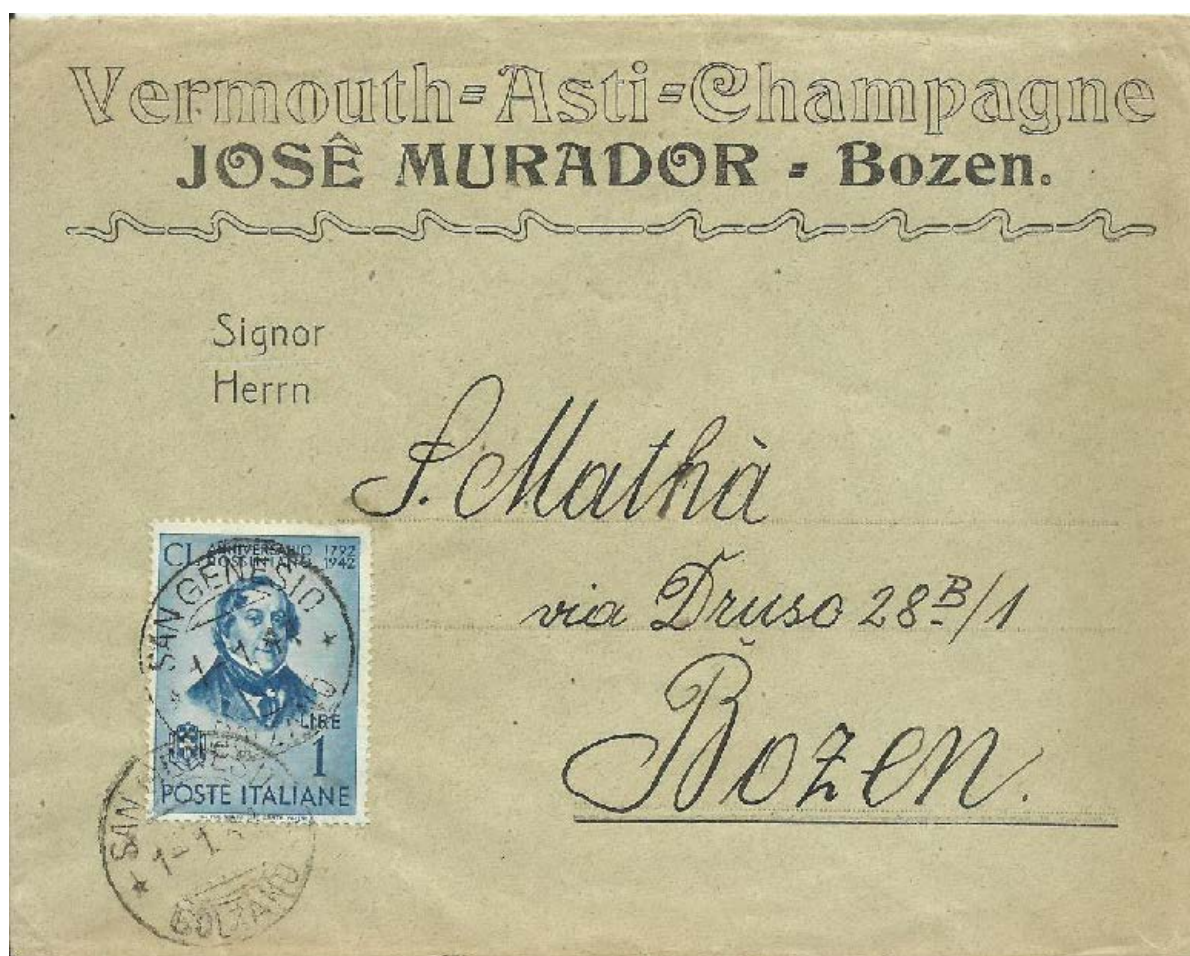 Vermouth=Asti=Champagne
JOSÊ MURADOR - Bozen.
Signor
Herrn
S. Mathà
via Druso 28B/1
Bozen.
CL ANNIVERSARIO 1792
ROSSINIANO 1942
SAN GENESIO
LIRE
1
POSTE ITALIANE
SAN GENESIO
1-1
BOLZANO